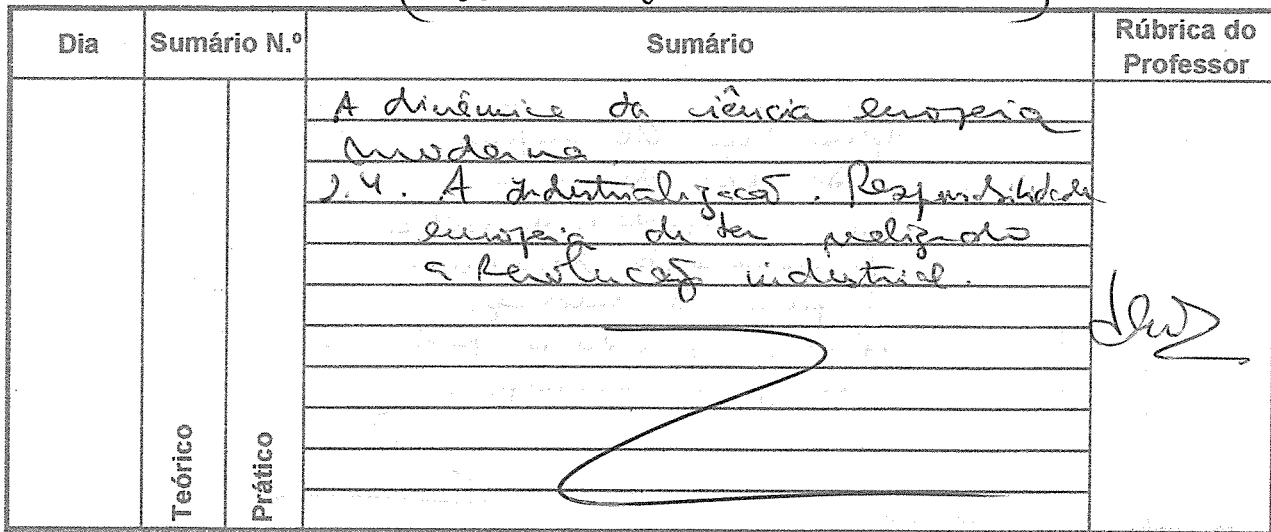 Dia Sumário N.º Sumário Rúbrica do Professor
A dinâmica da ciência europeia
moderna.
2.4. A Industrialização. Responsabilidade
europeia de ter realizado
a Revolução industrial.
Teórico Prático